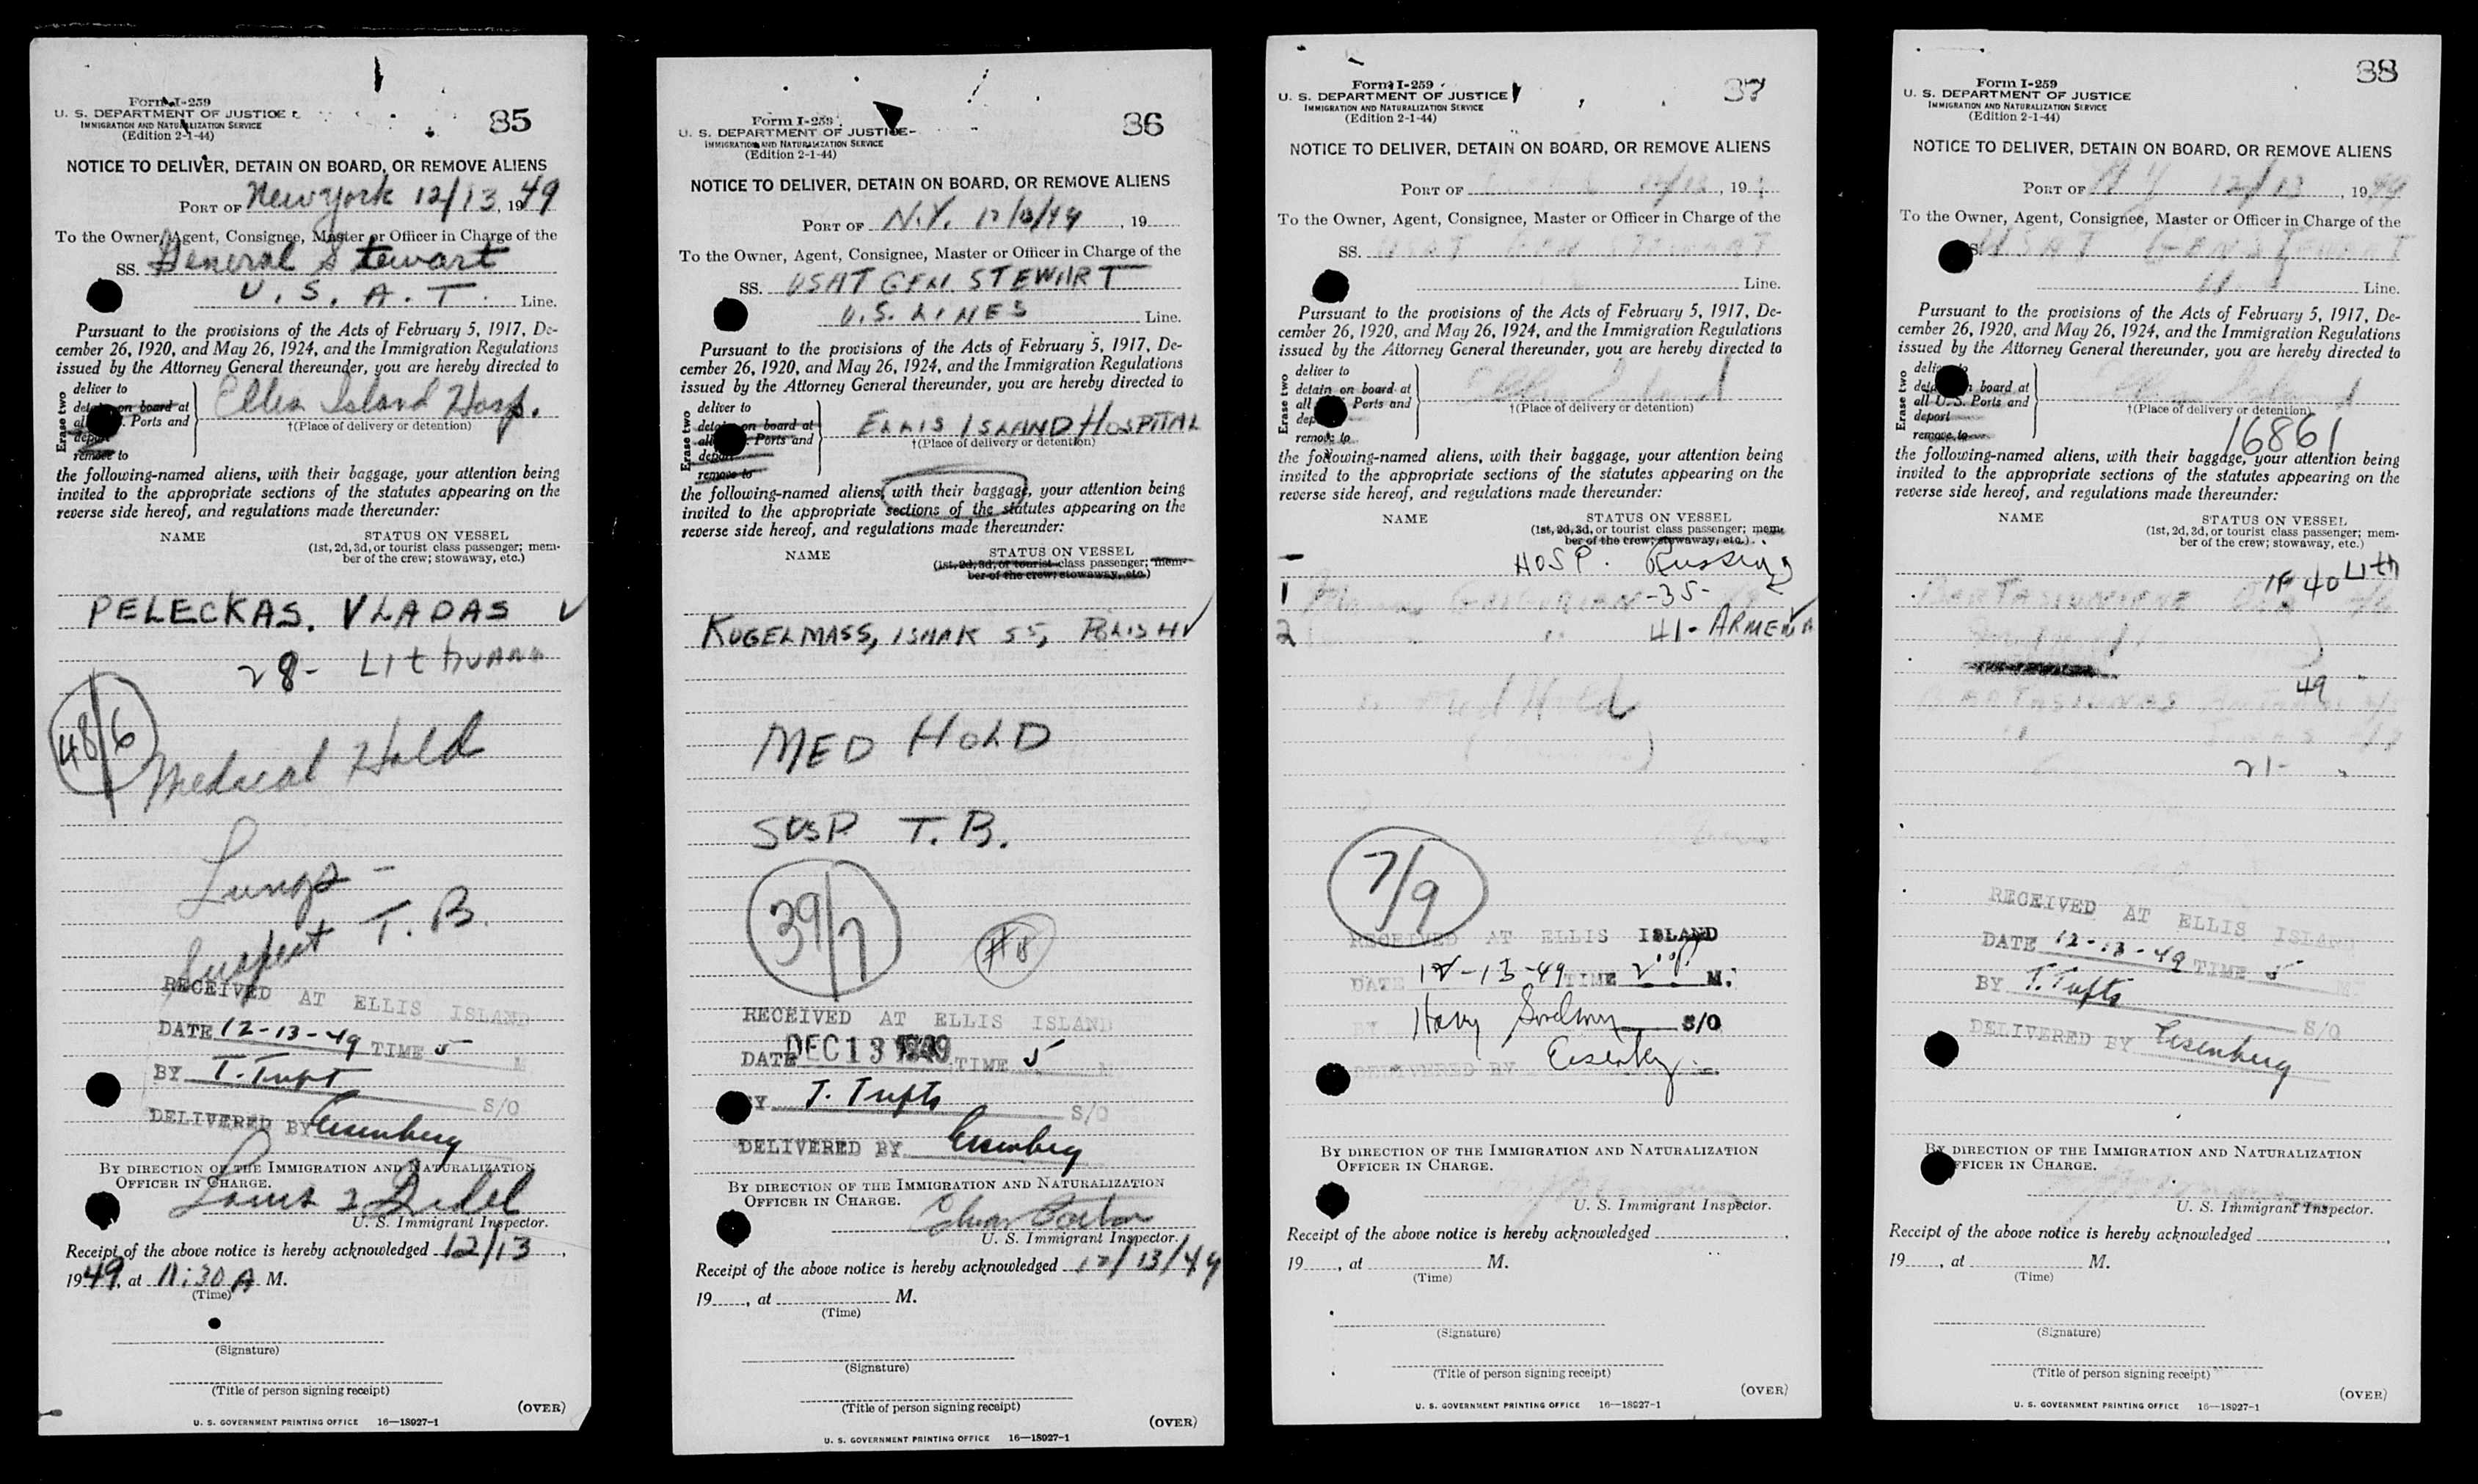 Form I-259
U. S. DEPARTMENT OF JUSTICE
IMMIGRATION AND NATURALIZATION SERVICE
(Edition 2-1-44)
85
NOTICE TO DELIVER, DETAIN ON BOARD, OR REMOVE ALIENS
PORT OF New York 12/13, 1949
To the Owner, Agent, Consignee, Master or Officer in Charge of the
SS. General Stewart
U. S. A. T. Line.
Pursuant to the provisions of the Acts of February 5, 1917, De-
cember 26, 1920, and May 26, 1924, and the Immigration Regulations
issued by the Attorney General thereunder, you are hereby directed to
Erase two
deliver to
on board at
Ports and
remove to
Ellis Island Hosp.
†(Place of delivery or detention)
the following-named aliens, with their baggage, your attention being
invited to the appropriate sections of the statutes appearing on the
reverse side hereof, and regulations made thereunder:
NAME STATUS ON VESSEL
(1st, 2d, 3d, or tourist class passenger; mem-
ber of the crew; stowaway, etc.)
PELECKAS, VLADAS ✓
28- Lithuania
48/6
Medical Hold
Lungs -
Suspect T. B.
RECEIVED AT ELLIS ISLAND
DATE 12-13-49 TIME 5 M
BY T. Tuft
S/O
DELIVERED BY Eisenberg
BY DIRECTION OF THE IMMIGRATION AND NATURALIZATION
OFFICER IN CHARGE.
U. S. Immigrant Inspector.
Receipt of the above notice is hereby acknowledged 12/13,
1949, at 11:30 A M.
(Time)
(Signature)
(Title of person signing receipt)
(OVER)
U. S. GOVERNMENT PRINTING OFFICE 16—18927-1
Form I-259
U. S. DEPARTMENT OF JUSTICE
IMMIGRATION AND NATURALIZATION SERVICE
(Edition 2-1-44)
86
NOTICE TO DELIVER, DETAIN ON BOARD, OR REMOVE ALIENS
PORT OF N.Y. 12/13/49, 19
To the Owner, Agent, Consignee, Master or Officer in Charge of the
SS. USAT GEN. STEWART
U.S. LINES Line.
Pursuant to the provisions of the Acts of February 5, 1917, De-
cember 26, 1920, and May 26, 1924, and the Immigration Regulations
issued by the Attorney General thereunder, you are hereby directed to
Erase two
deliver to
on board at
Ports and
remove to
ELLIS ISLAND HOSPITAL
†(Place of delivery or detention)
the following-named aliens, with their baggage, your attention being
invited to the appropriate sections of the statutes appearing on the
reverse side hereof, and regulations made thereunder:
NAME STATUS ON VESSEL
(1st, 2d, 3d, or tourist class passenger; mem-
ber of the crew; stowaway, etc.)
KUGELMASS, ISAAK 55, POLISH ✓
MED HOLD
SUSP T. B.
39/7
#8
RECEIVED AT ELLIS ISLAND
DATE DEC 13 1949 TIME 5 M
BY T. Tufts
S/O
DELIVERED BY Eisenberg
BY DIRECTION OF THE IMMIGRATION AND NATURALIZATION
OFFICER IN CHARGE.
U. S. Immigrant Inspector.
Receipt of the above notice is hereby acknowledged 12/13/49
19, at M.
(Time)
(Signature)
(Title of person signing receipt)
(OVER)
U. S. GOVERNMENT PRINTING OFFICE 16—18927-1
Form I-259
U. S. DEPARTMENT OF JUSTICE
IMMIGRATION AND NATURALIZATION SERVICE
(Edition 2-1-44)
87
NOTICE TO DELIVER, DETAIN ON BOARD, OR REMOVE ALIENS
PORT OF 12/13, 19
To the Owner, Agent, Consignee, Master or Officer in Charge of the
SS. USAT GEN STEWART
Line.
Pursuant to the provisions of the Acts of February 5, 1917, De-
cember 26, 1920, and May 26, 1924, and the Immigration Regulations
issued by the Attorney General thereunder, you are hereby directed to
Erase two
deliver to
detain on board at
all Ports and
remove to
Ellis Island
†(Place of delivery or detention)
the following-named aliens, with their baggage, your attention being
invited to the appropriate sections of the statutes appearing on the
reverse side hereof, and regulations made thereunder:
NAME STATUS ON VESSEL
(1st, 2d, 3d, or tourist class passenger; mem-
ber of the crew; stowaway, etc.)
HOSP. Russia
1 -35-
2 " 41- ARMENIA
Med Hold
7/9
RECEIVED AT ELLIS ISLAND
DATE 12-13-49 TIME M.
BY Harry S/O
DELIVERED BY Eisenberg
BY DIRECTION OF THE IMMIGRATION AND NATURALIZATION
OFFICER IN CHARGE.
U. S. Immigrant Inspector.
Receipt of the above notice is hereby acknowledged
19, at M.
(Time)
(Signature)
(Title of person signing receipt)
(OVER)
U. S. GOVERNMENT PRINTING OFFICE 16—18927-1
Form I-259
U. S. DEPARTMENT OF JUSTICE
IMMIGRATION AND NATURALIZATION SERVICE
(Edition 2-1-44)
88
NOTICE TO DELIVER, DETAIN ON BOARD, OR REMOVE ALIENS
PORT OF N Y 12/13, 1949
To the Owner, Agent, Consignee, Master or Officer in Charge of the
USAT GEN STEWART
Line.
Pursuant to the provisions of the Acts of February 5, 1917, De-
cember 26, 1920, and May 26, 1924, and the Immigration Regulations
issued by the Attorney General thereunder, you are hereby directed to
Erase two
board at
all U. S. Ports and
deport
remove to
Ellis Island
†(Place of delivery or detention)
16861
the following-named aliens, with their baggage, your attention being
invited to the appropriate sections of the statutes appearing on the
reverse side hereof, and regulations made thereunder:
NAME STATUS ON VESSEL
(1st, 2d, 3d, or tourist class passenger; mem-
ber of the crew; stowaway, etc.)
1F 40 Lith
BARTASIUNIENE
49 "
BARTASIUNAS
"
21- "
RECEIVED AT ELLIS ISLAND
DATE 12-13-49 TIME 5 M
BY T. Tufts
S/O
DELIVERED BY Eisenberg
BY DIRECTION OF THE IMMIGRATION AND NATURALIZATION
OFFICER IN CHARGE.
U. S. Immigrant Inspector.
Receipt of the above notice is hereby acknowledged
19, at M.
(Time)
(Signature)
(Title of person signing receipt)
(OVER)
U. S. GOVERNMENT PRINTING OFFICE 16—18927-1